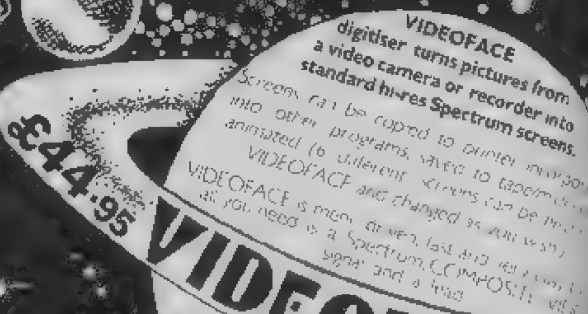 VIDEOFACE
digitiser turns pictures from
a video camera or recorder into
standard hi-res Spectrum screens.
Screens can be copied to printer
into other programs, saved to tape/
animated (6 different screens can be
VIDEOFACE and changed as you wish)
VIDEOFACE is menu driven, fast and
all you need is a Spectrum, COMPOSITE
signal and a
£44.95
VIDEO